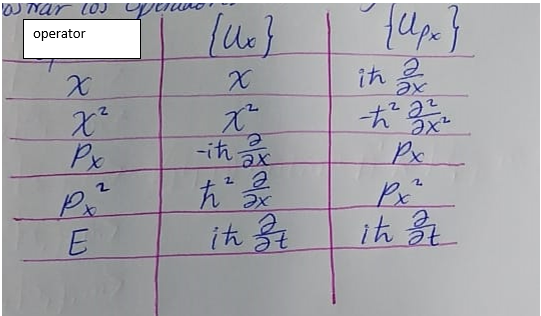 ostrar los operador
operator {Uₓ} {Uₚₓ}
x x iħ ∂/∂x
x² x² -ħ² ∂²/∂x²
Pₓ -iħ ∂/∂x Pₓ
Pₓ² ħ² ∂/∂x Pₓ²
E iħ ∂/∂t iħ ∂/∂t